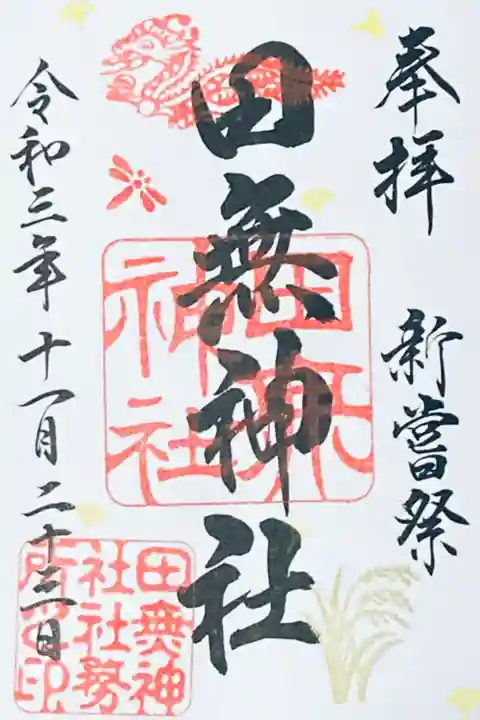 奉拝 新嘗祭
田無神社
令和三年十一月二十三日
田無神社
田無神社社務所之印